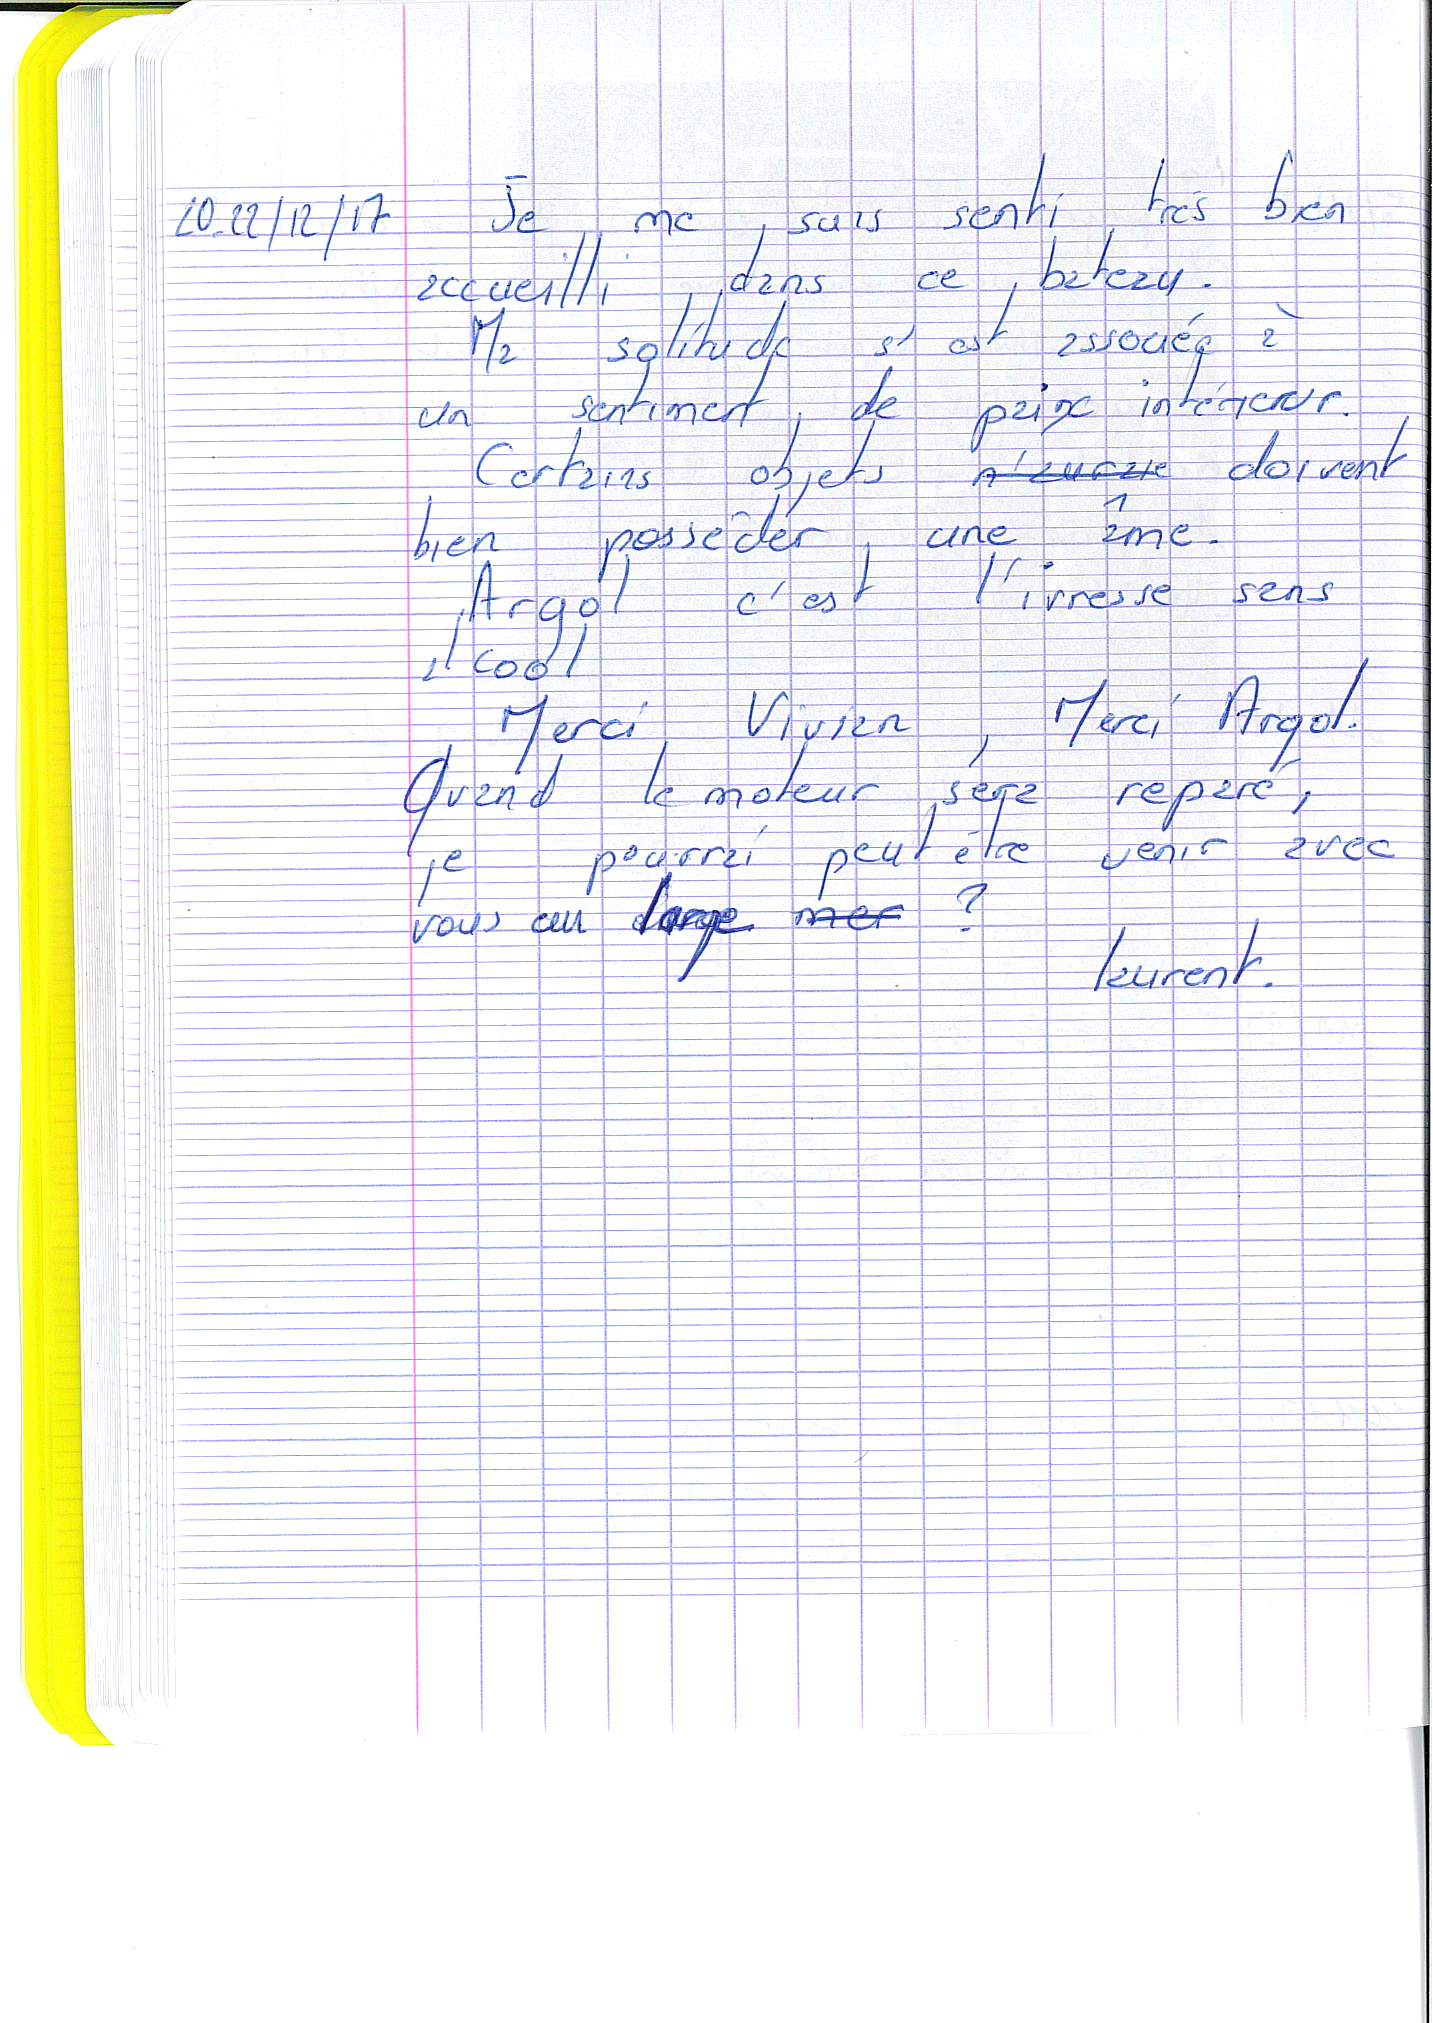 20.22/12/17 Je me suis senti très bien
accueilli dans ce bateau.
Ma solitude s'est associée à
un sentiment de paix intérieur.
Certains objets n'auraie doivent
bien posséder une âme.
Argol c'est l'ivresse sans
alcool
Merci Vivian, Merci Argol.
Quand le moteur sera reparé,
je pourrai peut être venir avec
vous au large mer ?
laurent.